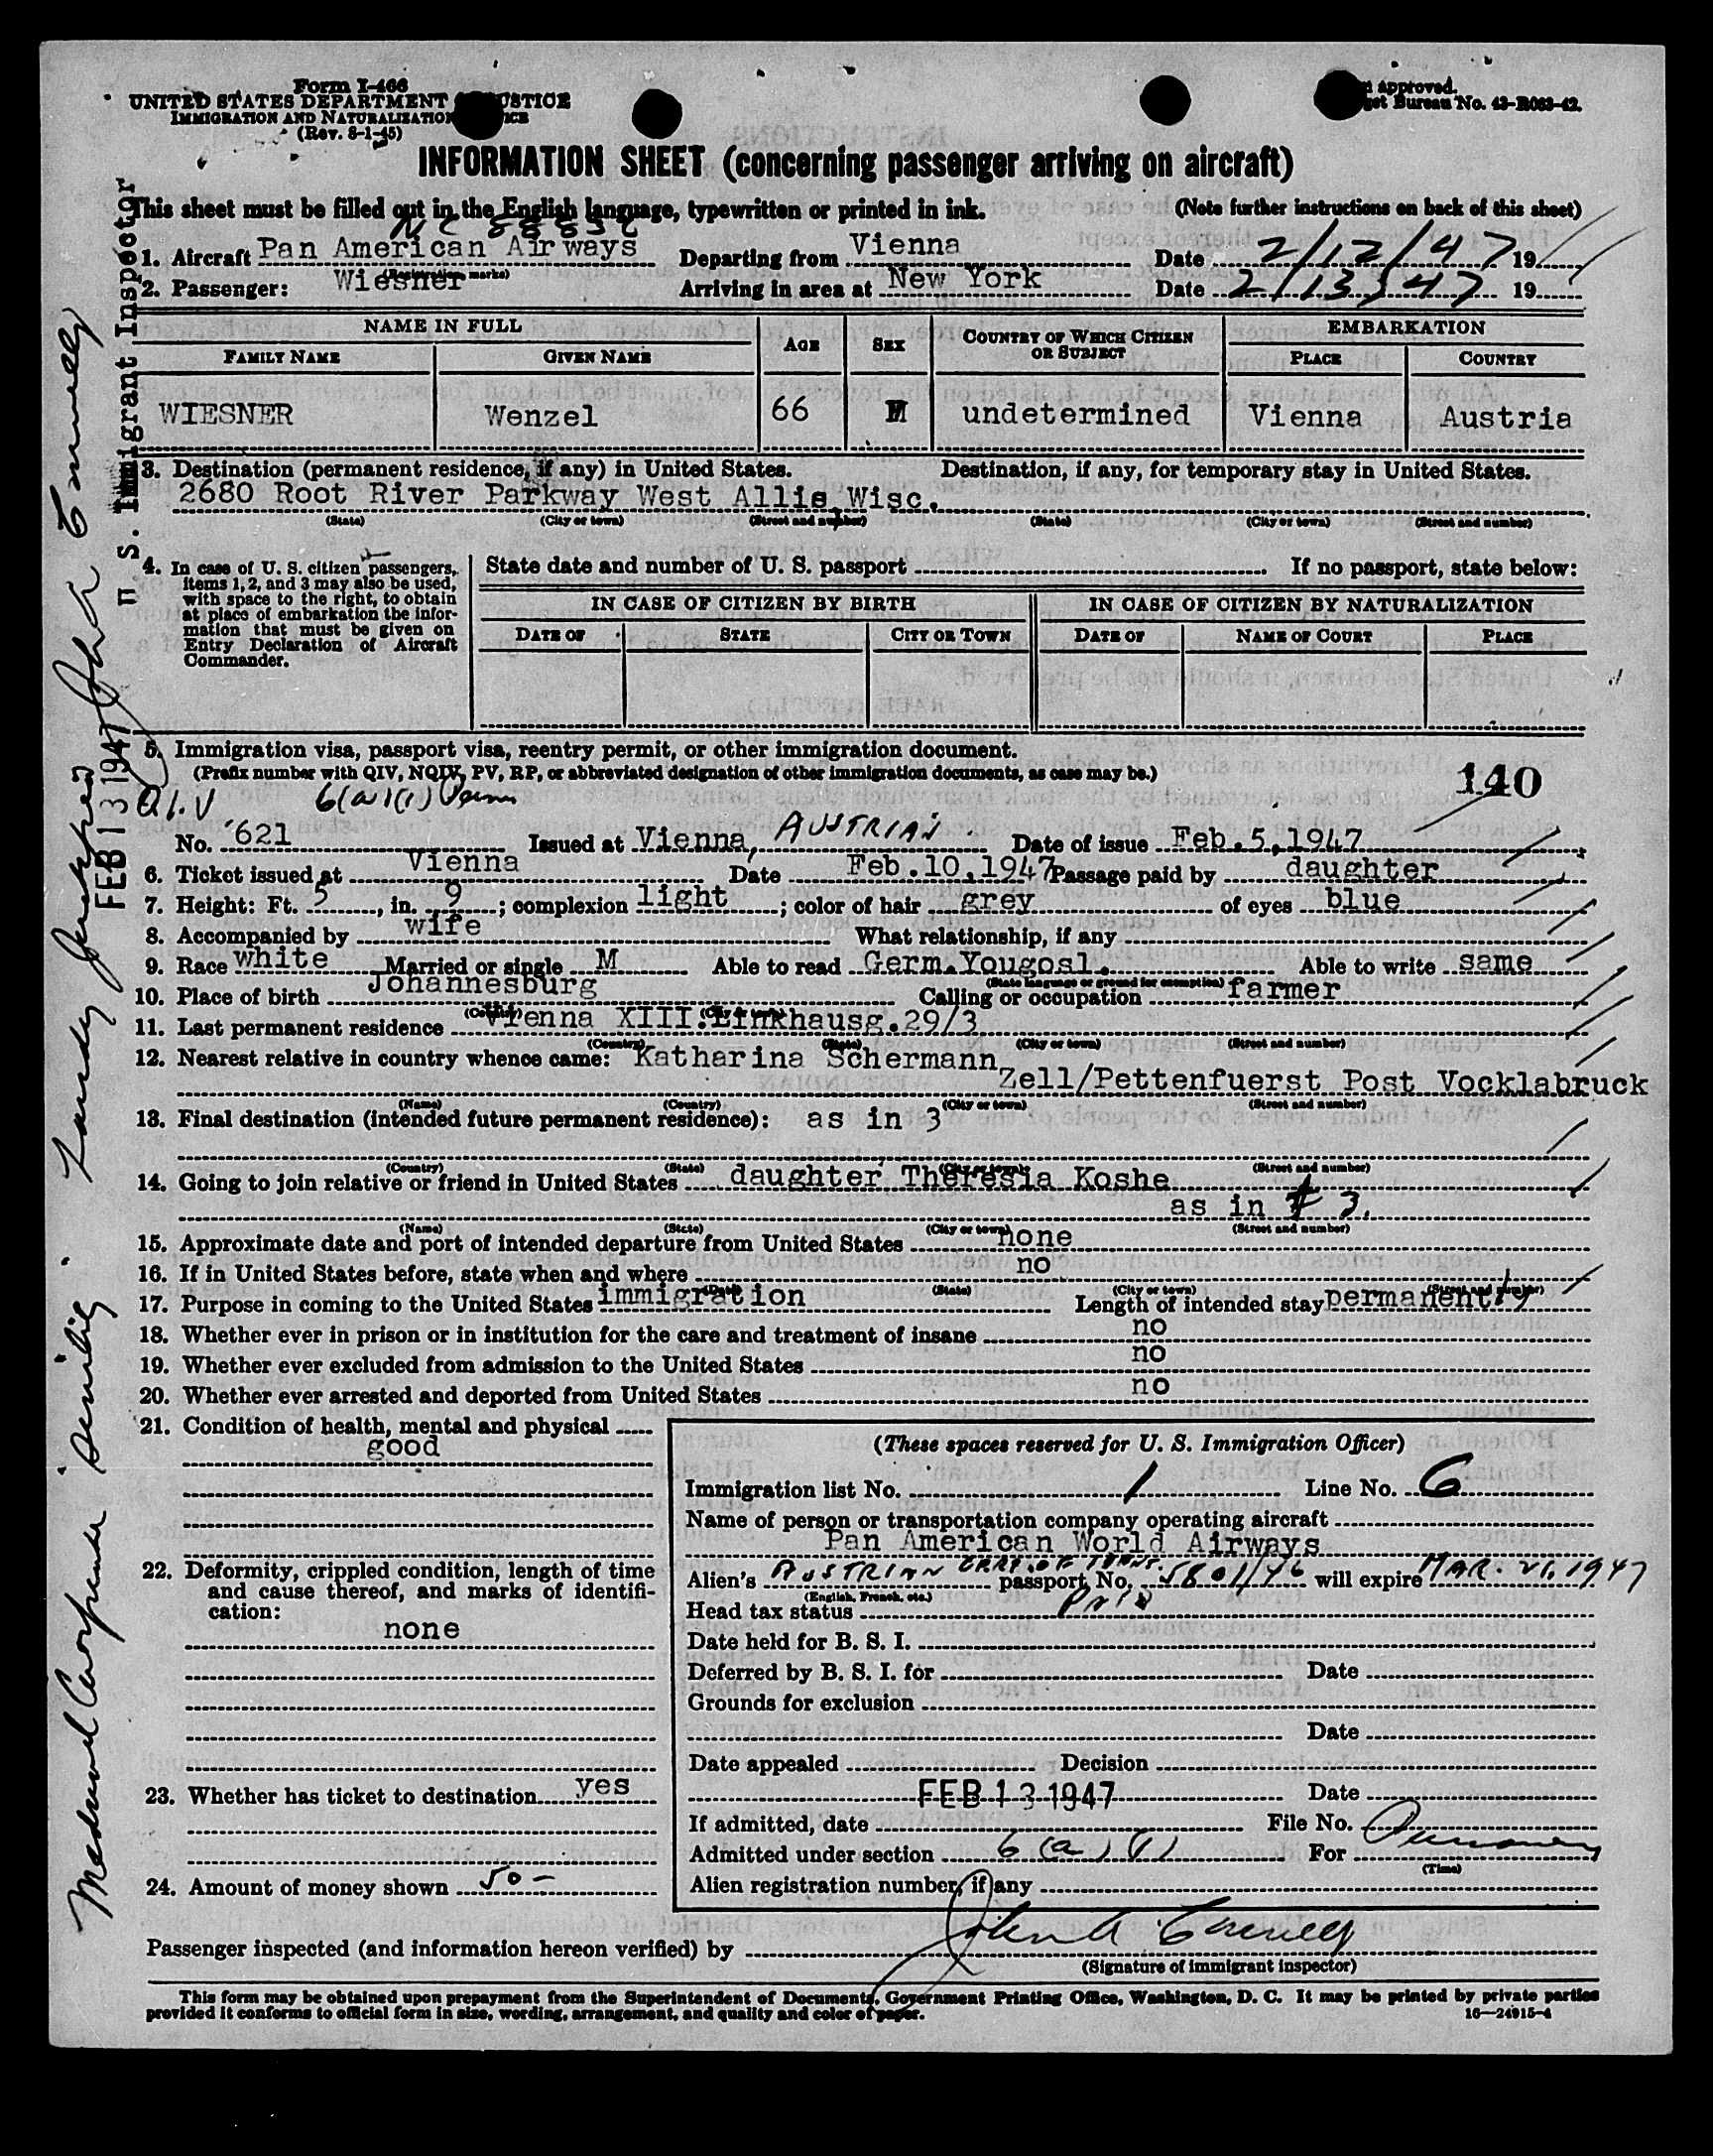 Form I-466
UNITED STATES DEPARTMENT JUSTICE
IMMIGRATION AND NATURALIZATION
(Rev. 8-1-45)
approved.
Bureau No. 43-R063-42.
INFORMATION SHEET (concerning passenger arriving on aircraft)
This sheet must be filled out in the English language, typewritten or printed in ink. (Note further instructions on back of this sheet)
1. Aircraft Pan American Airways Departing from Vienna Date 2/12/47 19
(Registration marks)
2. Passenger: Wiesner Arriving in area at New York Date 2/13/47 19
NAME IN FULL AGE SEX COUNTRY OF WHICH CITIZEN OR SUBJECT EMBARKATION
FAMILY NAME GIVEN NAME PLACE COUNTRY
WIESNER Wenzel 66 M undetermined Vienna Austria
3. Destination (permanent residence, if any) in United States. Destination, if any, for temporary stay in United States.
2680 Root River Parkway West Allis, Wisc.
(State) (City or town) (Street and number) (State) (City or town) (Street and number)
4. In case of U. S. citizen passengers,
items 1, 2, and 3 may also be used,
with space to the right, to obtain
at place of embarkation the infor-
mation that must be given on
Entry Declaration of Aircraft
Commander.
State date and number of U. S. passport If no passport, state below:
IN CASE OF CITIZEN BY BIRTH IN CASE OF CITIZEN BY NATURALIZATION
DATE OF STATE CITY OR TOWN DATE OF NAME OF COURT PLACE
5. Immigration visa, passport visa, reentry permit, or other immigration document.
(Prefix number with QIV, NQIV, PV, RP, or abbreviated designation of other immigration documents, as case may be.)
140
Q I.V 6(a)(1)
No. 621 Issued at Vienna, AUSTRIA Date of issue Feb.5,1947
6. Ticket issued at Vienna Date Feb.10,1947 Passage paid by daughter
7. Height: Ft. 5, in. 9; complexion light; color of hair grey of eyes blue
8. Accompanied by wife What relationship, if any
9. Race white Married or single M Able to read Germ.Yougosl. Able to write same
(State language or ground for exemption)
10. Place of birth Johannesburg Calling or occupation farmer
(Country) (City or town)
11. Last permanent residence Vienna XIII.Linkhausg.29/3
(Country) (State) (City or town) (Street and number)
12. Nearest relative in country whence came: Katharina Schermann
Zell/Pettenfuerst Post Vocklabruck
(Name) (Country) (City or town) (Street and number)
13. Final destination (intended future permanent residence): as in 3
(Country) (State) (City or town) (Street and number)
14. Going to join relative or friend in United States daughter Theresia Koshe
as in # 3.
(Name) (State) (City or town) (Street and number)
15. Approximate date and port of intended departure from United States none
16. If in United States before, state when and where no
(Date) (State) (City or town) (Street and number)
17. Purpose in coming to the United States immigration Length of intended stay permanently
18. Whether ever in prison or in institution for the care and treatment of insane no
19. Whether ever excluded from admission to the United States no
20. Whether ever arrested and deported from United States no
21. Condition of health, mental and physical
good
22. Deformity, crippled condition, length of time
and cause thereof, and marks of identifi-
cation:
none
23. Whether has ticket to destination yes
24. Amount of money shown 50-
(These spaces reserved for U. S. Immigration Officer)
Immigration list No. 1 Line No. 6
Name of person or transportation company operating aircraft
Pan American World Airways
Alien's AUSTRIAN passport No. 5801/46 will expire MAR. 21, 1947
(English, French, etc.)
Head tax status Paid
Date held for B. S. I.
Deferred by B. S. I. for Date
Grounds for exclusion
Date
Date appealed Decision
FEB 13 1947 Date
If admitted, date File No.
Admitted under section 6(a)(1) For
(Time)
Alien registration number, if any
Passenger inspected (and information hereon verified) by
(Signature of immigrant inspector)
This form may be obtained upon prepayment from the Superintendent of Documents, Government Printing Office, Washington, D. C. It may be printed by private parties
provided it conforms to official form in size, wording, arrangement, and quality and color of paper.
16—24915-4
U S. Immigrant Inspector
FEB 13 1947